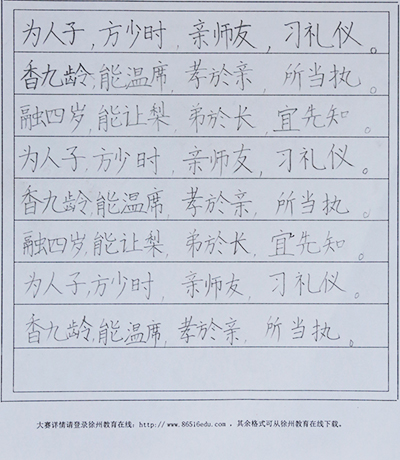 为人子,方少时,亲师友,习礼仪。
香九龄,能温席,孝於亲,所当执。
融四岁,能让梨,弟於长,宜先知。
为人子,方少时,亲师友,习礼仪。
香九龄,能温席,孝於亲,所当执。
融四岁,能让梨,弟於长,宜先知。
为人子,方少时,亲师友,习礼仪。
香九龄,能温席,孝於亲,所当执。
大赛详情请登录徐州教育在线: http://www.86516edu.com 。其余格式可从徐州教育在线下载。